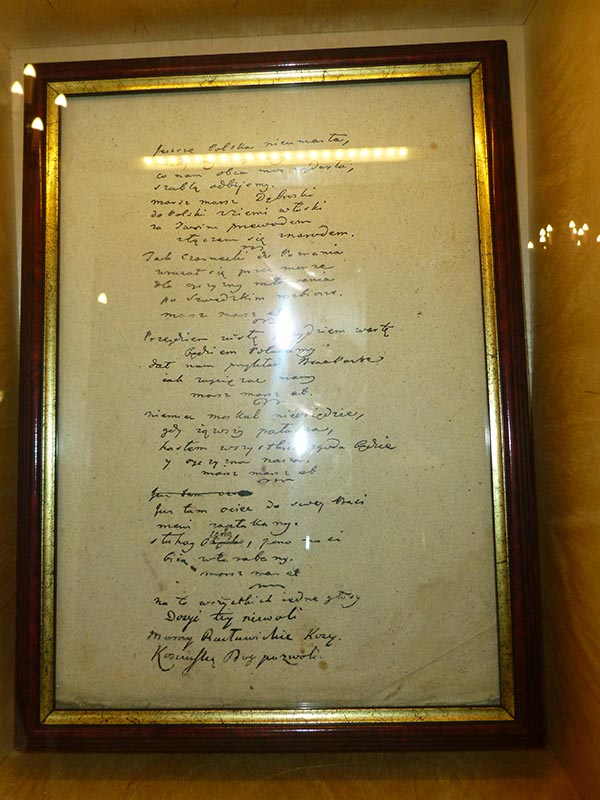 Jeszcze Polska nieumarła,
co nam obca moc wydarła,
szablą odbijemy.
marsz marsz Dąbroski
do Polski z ziemi włoski
za Twoim przewodem
złączem się znarodem.
Jak Czarnecki do Poznania
wracał się przez morze
dla oyczyzny ratowania
po Szwedzkim rozbiorze.
marsz marsz et
Przejdziem wisłę przejdziem wartę
będziem Polakamy
dał nam przykład Bonaparte
jak zwyciężać mamy
marsz marsz eb.
niemiec moskal nieosiędzie,
gdy iąwszy pałasza,
hasłem wszystkich zgoda będzie
y oyczyzna nasza.
marsz marsz eb
Już tam
Już tam ociec do swey Basi
mówi zapłakany.
słuchay ieno, pono nasi
biią w tarabany.
marsz marsz et
na to wszystkich iedne głosy
Dosyć tey niewoli
mamy Racławickie Kosy.
Kościuszkę Bóg pozwoli.